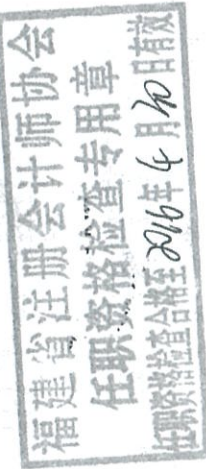 福建省注册会计师协会
任职资格检查专用章
任职资格检查合格至年月日有效